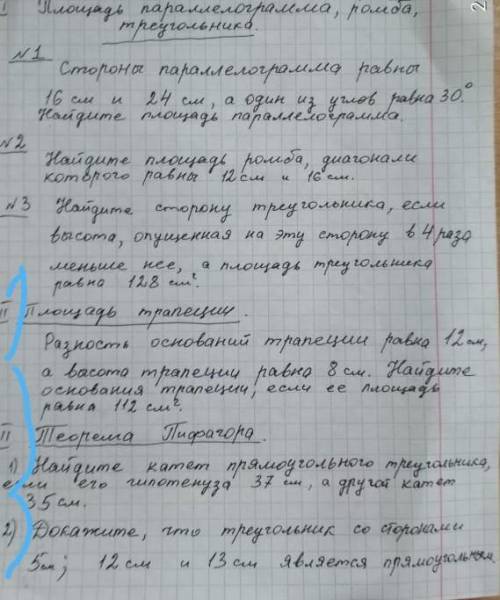 I Площадь параллелограмма, ромба,
треугольника.
№1
Стороны параллелограмма равны
16 см и 24 см, а один из углов равна 30°
Найдите площадь параллелограмма.
№2
Найдите площадь ромба, диагонали
которого равны 12 см и 16 см.
№3 Найдите сторону треугольника, если
высота, опущенная на эту сторону в 4 раза
меньше нее, а площадь треугольника
равна 128 см².
II Площадь трапеции.
Разность оснований трапеции равна 12 см,
а васота трапеции равна 8 см. Найдите
основания трапеции, если ее площадь
равна 112 см².
II Теорема Пифагора.
1) Найдите катет прямоугольного треугольника,
если его гипотенуза 37 см, а другой катет
35 см.
2) Докажите, что треугольник со сторонами
5см; 12 см и 13 см является прямоугольным.